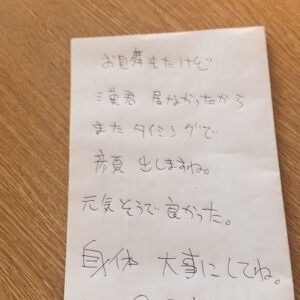 お見舞来たけど
漢君 居なかったから
また タイミングで
顔 出しますね。
元気そうで良かった。
身体 大事にしてね。